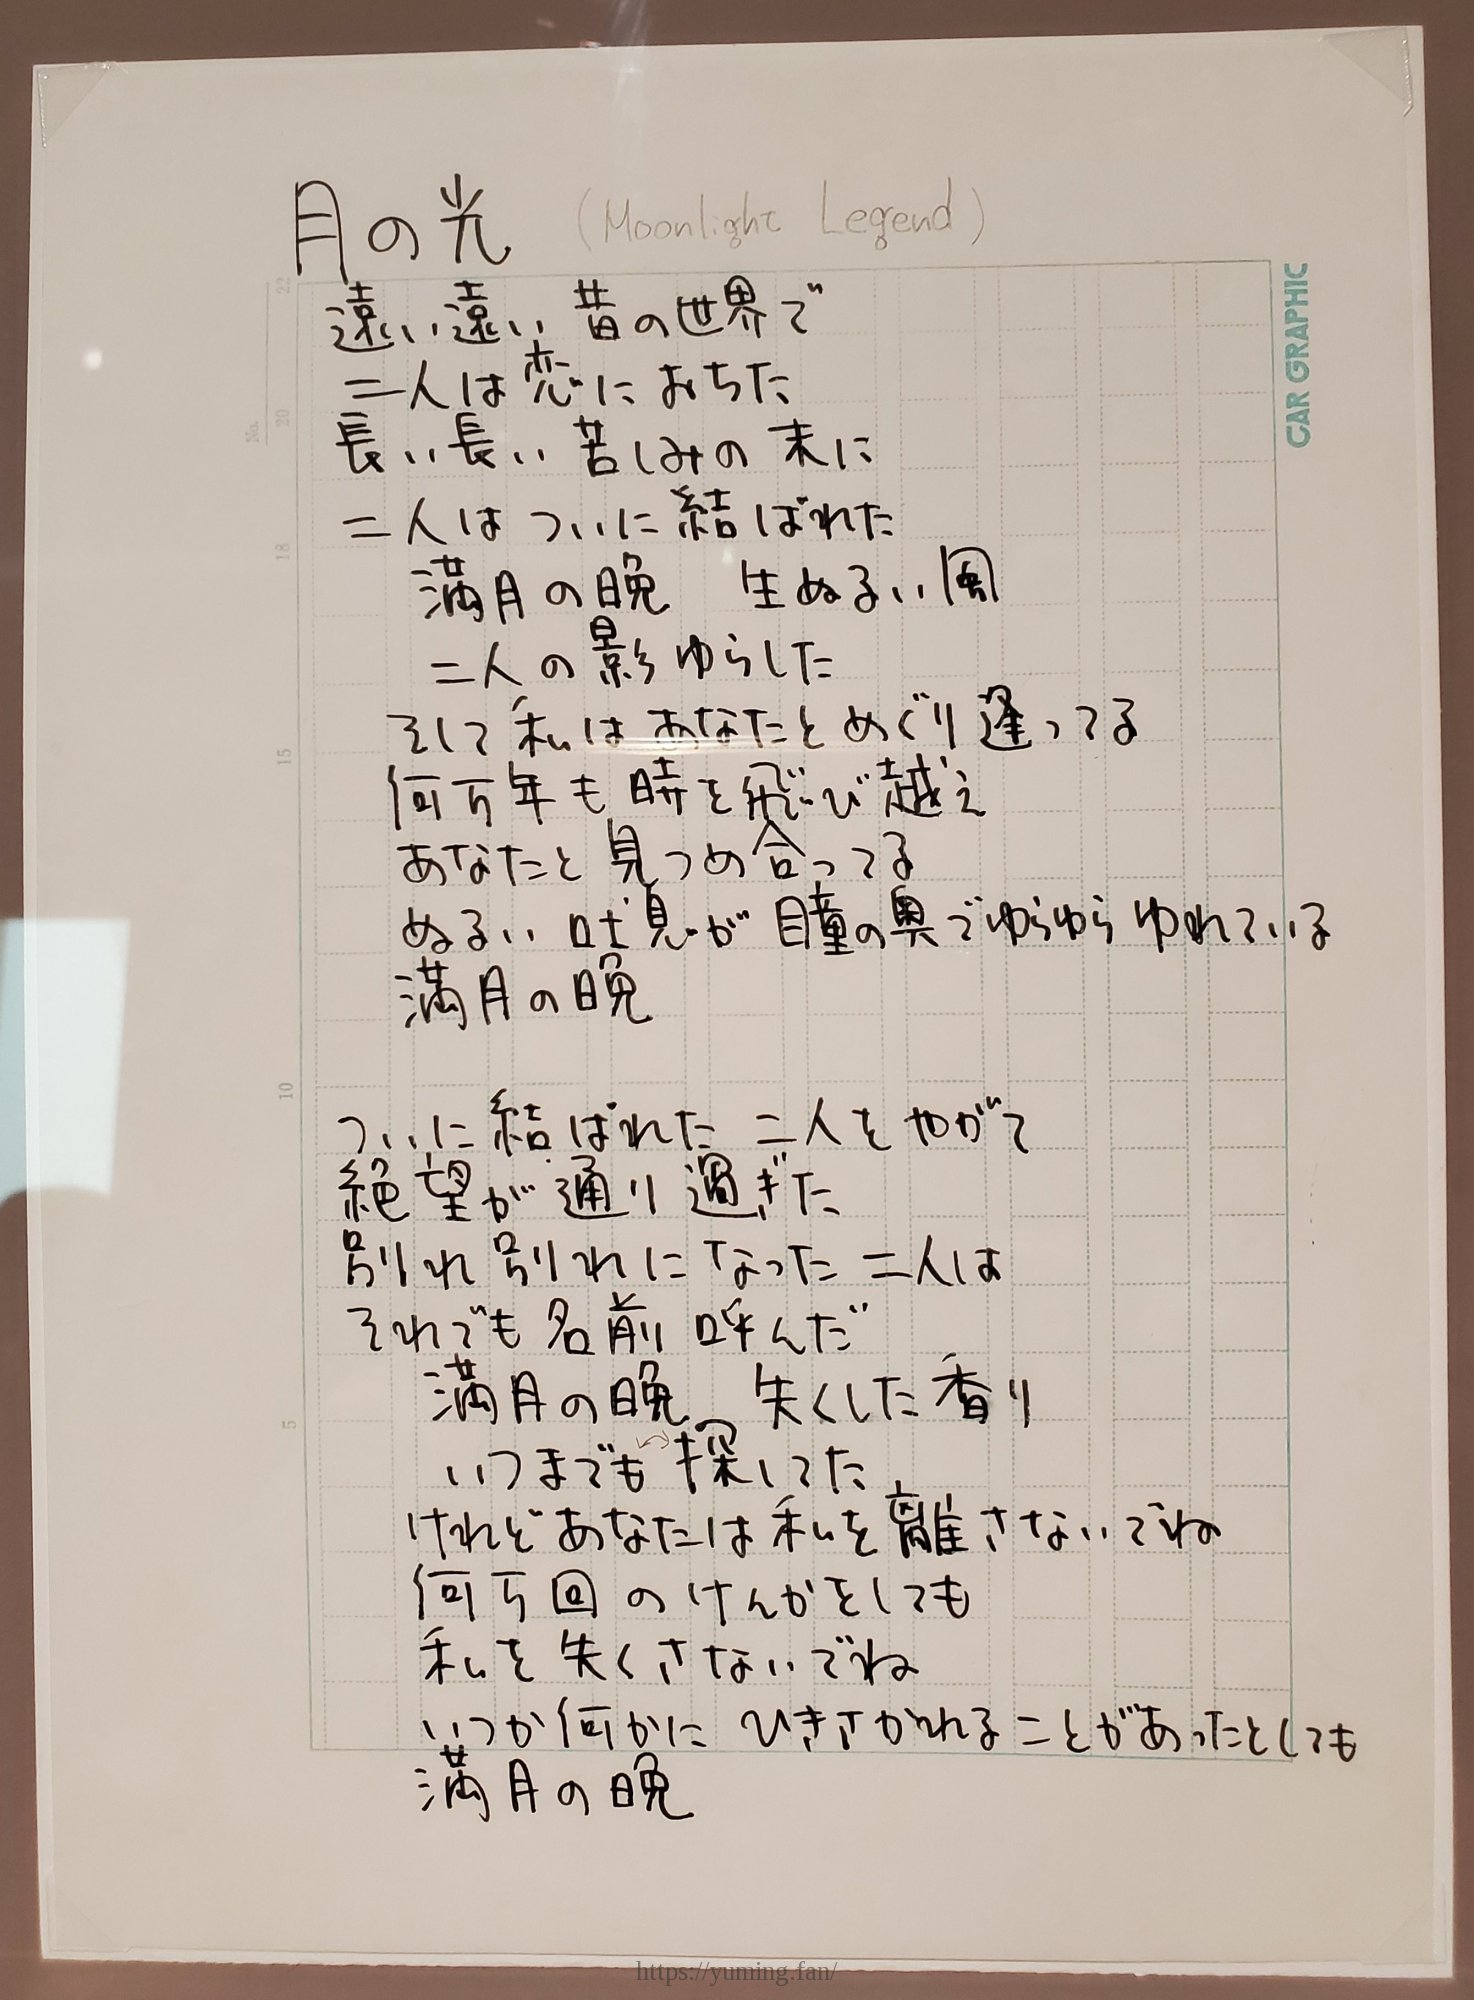 月の光 (Moonlight Legend)
遠い遠い 昔の世界で
二人は恋に おちた
長い長い 苦しみの 末に
二人は ついに 結ばれた
満月の晩 生ぬるい風
二人の影 ゆらした
そして 私は あなたと めぐり逢ってる
何万年も 時を飛び越え
あなたと 見つめ合ってる
ぬるい 吐息が 瞳の奥で ゆらゆら ゆれている
満月の晩
ついに 結ばれた 二人を やがて
絶望が 通り過ぎた
別れ別れに なった 二人は
それでも 名前 呼んだ
満月の晩 失くした 香り
いつまでも 探してた
けれど あなたは 私を 離さないでね
何万回の けんかをしても
私を 失くさないでね
いつか何かに ひきさかれることがあったとしても
満月の晩
CAR GRAPHIC
No.
22
20
18
15
10
5
https://yuming.fan/